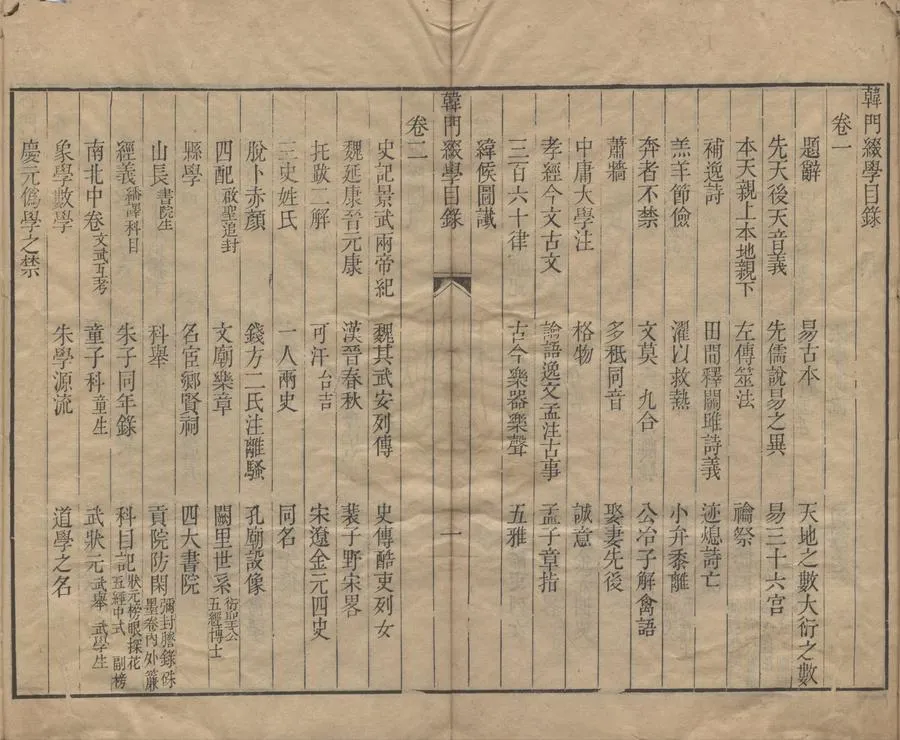 韓門綴學目錄
卷一
題辭　易古本　天地之數大衍之數
先天後天音義　先儒說易之異　易三十六宮
本天親上本地親下　左傳筮法　禴祭
補逸詩　田間釋關雎詩義　迹熄詩亡
羔羊節儉　濯以救熱　小弁黍離
奔者不禁　文莫　九合　公冶子解禽語
蕭牆　多秖同音　娶妻先後
中庸大學注　格物　誠意
孝經今文古文　論語逸文孟注古事　孟子章指
三百六十律　古今樂器樂聲　五雅
緯候圖讖
韓門綴學目錄　一
卷二
史記景武兩帝紀　魏其武安列傳　史傳酷吏列女
魏延康晉元康　漢晉春秋　裴子野宋畧
托跋二解　可汗台吉　宋遼金元四史
三史姓氏　一人兩史　同名
脫卜赤顏　錢方二氏注離騷　孔廟設像
四配啟聖追封　文廟樂章　闕里世系衍聖公五經博士
縣學　名宦鄉賢祠　四大書院
山長書院生　科舉　貢院防閑彌封謄錄硃墨卷內外簾
經義繙譯科目　朱子同年錄　科目記狀元榜眼探花五經中式　副榜
南北中卷文武互考　童子科童生　武狀元武舉　武學生
象學數學　朱學源流　道學之名
慶元僞學之禁